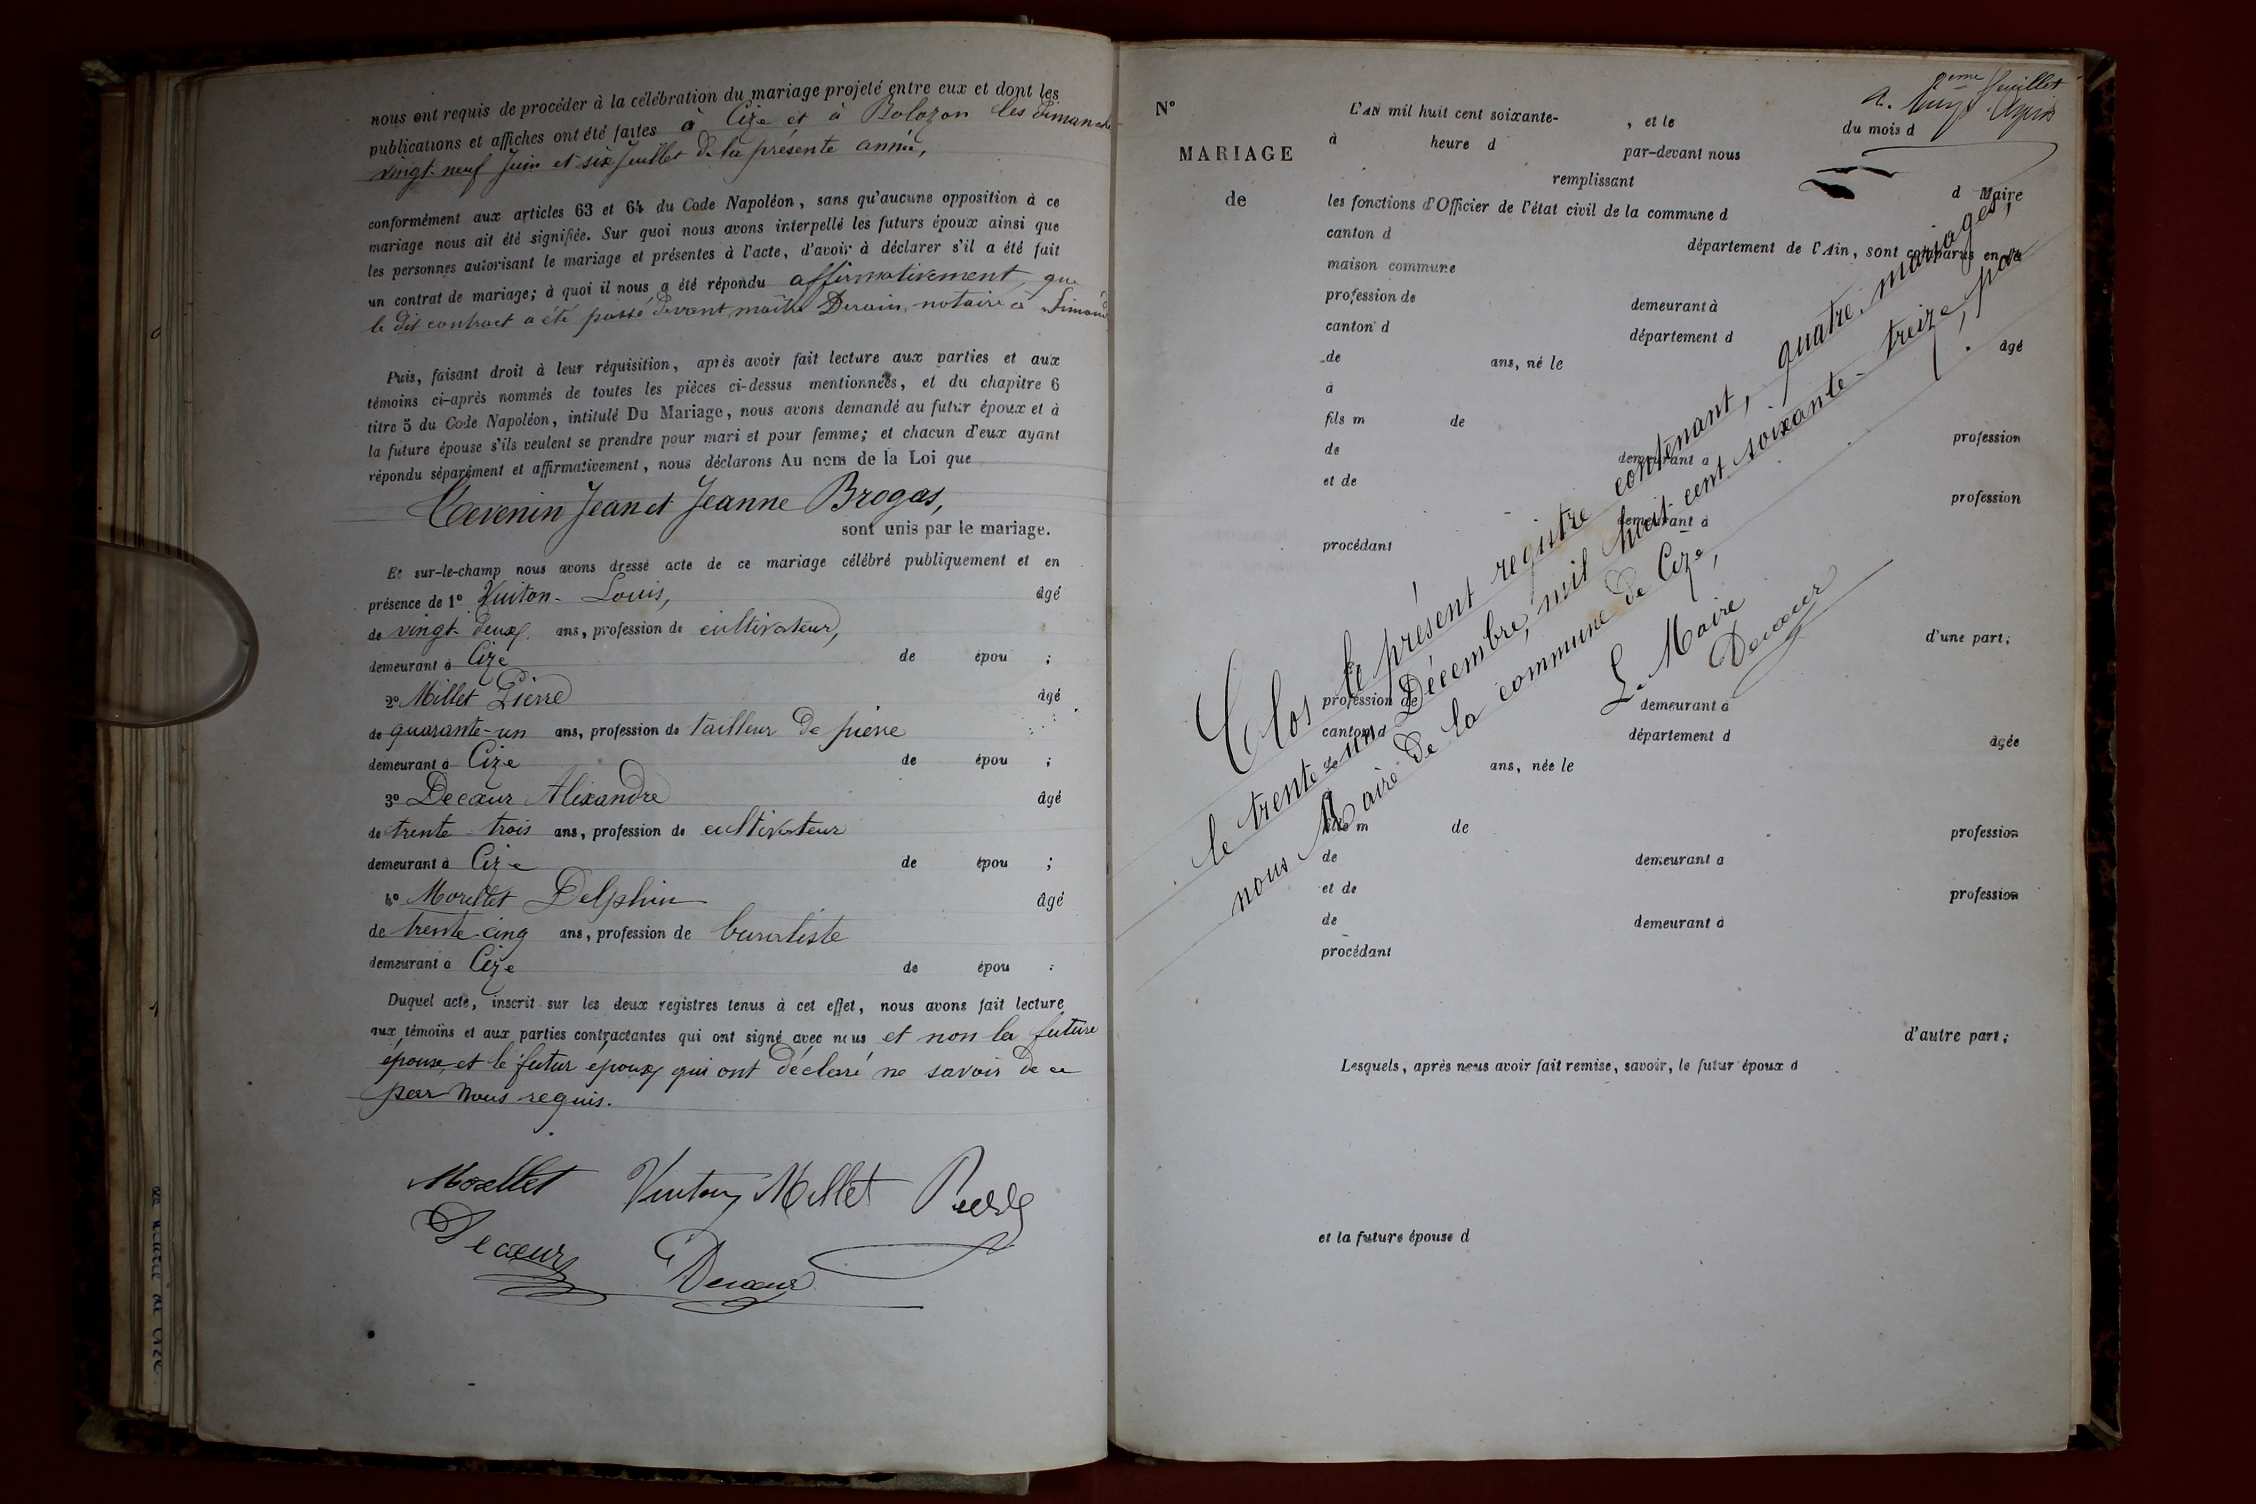 nous ont requis de procéder à la célébration du mariage projeté entre eux et dont les
publications et affiches ont été faites à Cize et à Bolozon les dimanche
vingt-neuf Juin et six Juillet de la présente année,
conformément aux articles 63 et 64 du Code Napoléon, sans qu'aucune opposition à ce
mariage nous ait été signifiée. Sur quoi nous avons interpellé les futurs époux ainsi que
les personnes autorisant le mariage et présentes à l'acte, d'avoir à déclarer s'il a été fait
un contrat de mariage; à quoi il nous a été répondu affirmativement, que
le dit contract a été passé devant maître Derain, notaire à
Puis, faisant droit à leur réquisition, après avoir fait lecture aux parties et aux
témoins ci-après nommés de toutes les pièces ci-dessus mentionnées, et du chapitre 6
titre 5 du Code Napoléon, intitulé Du Mariage, nous avons demandé au futur époux et à
la future épouse s'ils veulent se prendre pour mari et pour femme; et chacun d'eux ayant
répondu séparément et affirmativement, nous déclarons Au nom de la Loi que
Tevenin Jean et Jeanne Brogas,
sont unis par le mariage.
Et sur-le-champ nous avons dressé acte de ce mariage célébré publiquement et en
présence de 1º Vuiton Louis, âgé
de vingt-deux ans, profession de cultivateur,
demeurant à Cize de épou ;
2º Millet Pierre âgé
de quarante-un ans, profession de tailleur de pierre
demeurant à Cize de épou ;
3º Decœur Alexandre âgé
de trente trois ans, profession de cultivateur
demeurant à Cize de épou ;
4º Morellet Delphin âgé
de trente-cinq ans, profession de buraliste
demeurant à Cize de épou :
Duquel acte, inscrit sur les deux registres tenus à cet effet, nous avons fait lecture
aux témoins et aux parties contractantes qui ont signé avec nous et non la future
épouse, et le futur époux qui ont déclaré ne savoir de ce
par nous requis.
Morellet Vuiton Millet
Decœur Decœur
8eme feuillet
Nº L'AN mil huit cent soixante- , et le du mois d
à heure d par-devant nous
MARIAGE
remplissant
d Maire
de les fonctions d'Officier de l'état civil de la commune d
canton d département de l'Ain, sont comparus en la
maison commune
profession de demeurant à
canton d département d
de ans, né le âgé
à
fils m de
de demeurant à profession
et de
demeurant à profession
procédant
d'une part;
Clos le présent registre contenant, quatre mariages,
le trente-un Décembre, mil huit cent soixante-treize, par
nous Maire de la commune de Cize,
Le Maire
Decœur
profession de demeurant à
canton d département d
de ans, née le âgée
à
fille m de profession
de demeurant à
et de profession
de demeurant à
procédant
d'autre part;
Lesquels, après nous avoir fait remise, savoir, le futur époux d
et la future épouse d